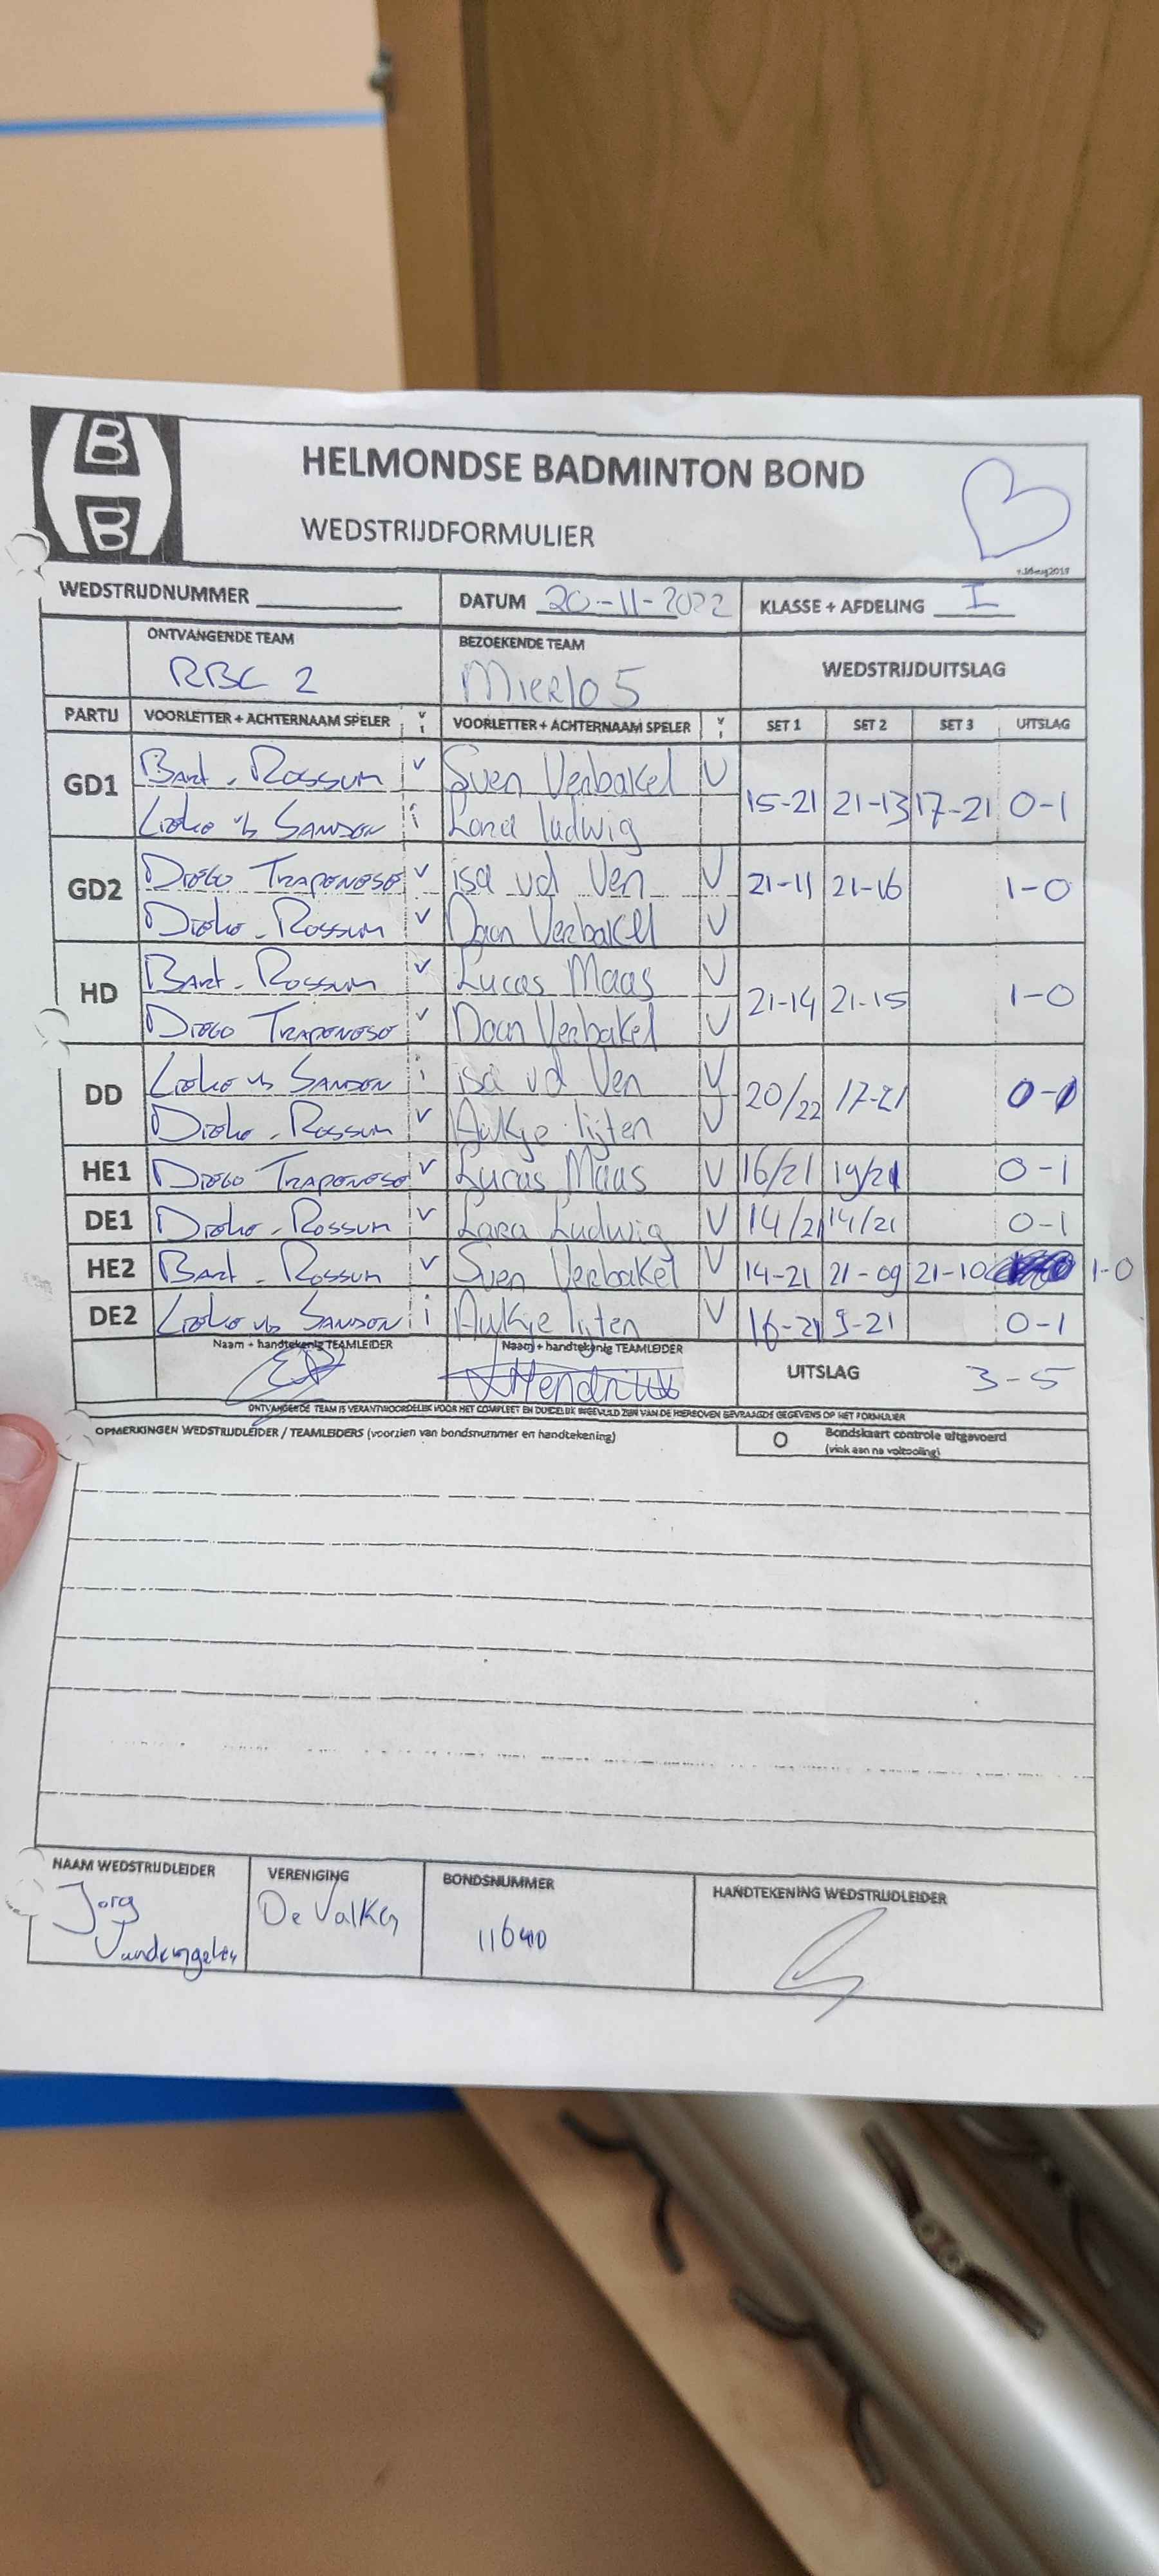 B
B
HELMONDSE BADMINTON BOND
WEDSTRIJDFORMULIER
WEDSTRIJDNUMMER DATUM 20-11-2022 KLASSE + AFDELING I
ONTVANGENDE TEAM BEZOEKENDE TEAM WEDSTRIJDUITSLAG
RBC 2 Mierlo 5
PARTIJ VOORLETTER + ACHTERNAAM SPELER v i VOORLETTER + ACHTERNAAM SPELER v i SET 1 SET 2 SET 3 UITSLAG
GD1 Bart Rossum v Sven Verbakel V 15-21 21-13 17-21 0-1
i Lara ludwig
GD2 Diego Trapenese v isa vd Ven V 21-11 21-16 1-0
Rossum v Daan Verbakel V
HD Bart Rossum v Lucas Maas V 21-14 21-15 1-0
Diego Trapenese v Daan Verbakel V
DD i isa vd Ven V 20/22 17-21 0-1
Rossum v Aukje lijten V
HE1 Diego Trapenese v Lucas Maas V 16/21 19/21 0-1
DE1 Rossum v Lara Ludwig V 14/21 14/21 0-1
HE2 Bart Rossum v Sven Verbakel V 14-21 21-09 21-10 1-0
DE2 i Aukje lijten V 16-21 9-21 0-1
Naam + handtekenig TEAMLEIDER Naam + handtekenig TEAMLEIDER UITSLAG 3-5
ONTVANGENDE TEAM IS VERANTWOORDELIJK VOOR HET COMPLEET EN DUIDELIJK INGEVULD ZIJN VAN DE HIERBOVEN GEVRAAGDE GEGEVENS OP HET FORMULIER
OPMERKINGEN WEDSTRIJDLEIDER / TEAMLEIDERS (voorzien van bondsnummer en handtekening) O Bondskaart controle uitgevoerd
(vink aan na voltooiing)
NAAM WEDSTRIJDLEIDER VERENIGING BONDSNUMMER HANDTEKENING WEDSTRIJDLEIDER
Jorg De Valken 11640